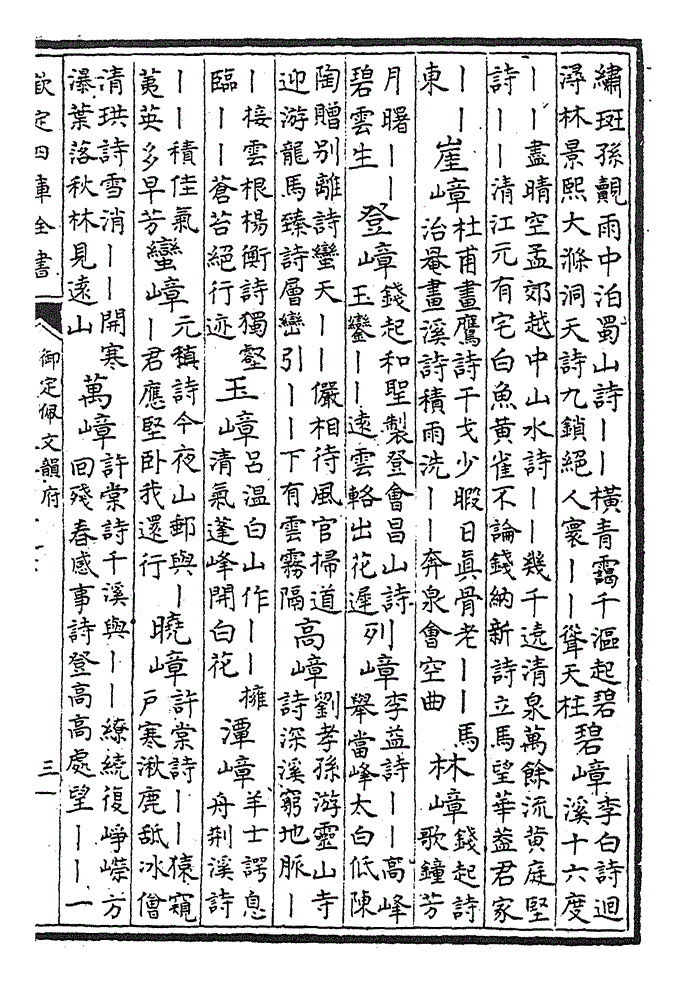 繡斑孫覿雨中泊蜀山詩｜｜橫青靄千漚起碧
潯林景熙大滌洞天詩九鎖絕人寰｜｜聳天柱
碧嶂
李白詩迴
溪十六度
｜｜盡晴空孟郊越中山水詩｜｜幾千遶清泉萬餘流黄庭堅
詩｜｜清江元有宅白魚黄雀不論錢納新詩立馬望華葢君家
｜｜
東
崖嶂
杜甫畫鷹詩干戈少暇日真骨老｜｜馬
治菴畫溪詩積雨洗｜｜奔泉會空曲
林嶂
錢起詩
歌鐘芳
月曙｜｜
碧雲生
登嶂
錢起和聖製登會昌山詩｜
玉鑾｜｜遠雲輅出花遲
列嶂
李益詩｜｜高峰
舉當峰太白低陳
陶贈别離詩蠻天｜｜儼相待風官掃道
迎游龍馬臻詩層巒引｜｜下有雲霧隔
高嶂
劉孝孫游靈山寺
詩深溪窮地脈｜
｜接雲根楊衡詩獨壑
臨｜｜蒼苔絕行迹
玉嶂
吕温白山作｜｜擁
清氣蓬峰開白花
潭嶂
羊士諤息
舟荆溪詩
｜｜積佳氣
蓂英多早芳
蠻嶂
元稹詩今夜山郵與｜
｜君應堅卧我還行
曉嶂
許棠詩｜｜猿窺
户寒湫鹿舐冰僧
清珙詩雪消｜｜開寒
瀑葉落秋林見遠山
萬嶂
許棠詩千溪與｜｜繚繞復崢嶸方
回殘春感事詩登高高處望｜｜一
欽定四庫全書
御定佩文韻府